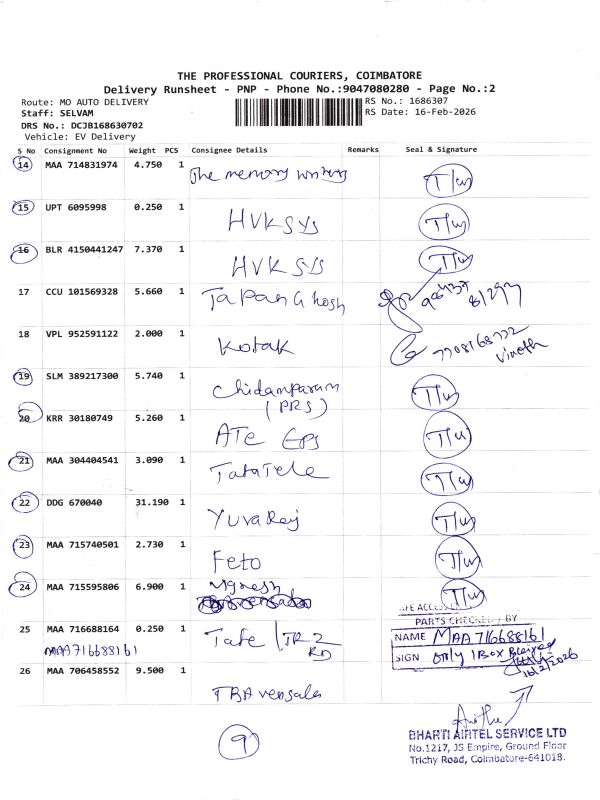 THE PROFESSIONAL COURIERS, COIMBATORE
Delivery Runsheet - PNP - Phone No.:9047080280 - Page No.:2
Route: MO AUTO DELIVERY
RS No.: 1686307
Staff: SELVAM
RS Date: 16-Feb-2026
DRS No.: DCJB168630702
Vehicle: EV Delivery
S No Consignment No Weight PCS Consignee Details Remarks Seal & Signature
14 MAA 714831974 4.750 1 The memory writers T/W
15 UPT 6095998 0.250 1 HVK SYS T/W
16 BLR 4150441247 7.370 1 HVK SYS T/W
17 CCU 101569328 5.660 1 Tapan Ghosh 81297
18 VPL 952591122 2.000 1 Kotak Vinoth
19 SLM 389217300 5.740 1 Chidamparam T/W
(PRS)
20 KRR 30180749 5.260 1 ATE EPS T/W
21 MAA 304404541 3.090 1 Tata Tele T/W
22 DDG 670040 31.190 1 Yuva Raj T/W
23 MAA 715740501 2.730 1 Feto T/W
24 MAA 715595806 6.900 1 Vignesh T/W
PARTS CHECKED BY
25 MAA 716688164 0.250 1 Tafe / TR 2 RD
MAA716688161
NAME MAA716688161
SIGN only 1 Box Received
16/2/2026
26 MAA 706458552 9.500 1 TBA vensala
9
BHARTI AIRTEL SERVICE LTD
No.1217, JS Empire, Ground Floor
Trichy Road, Coimbatore-641018.